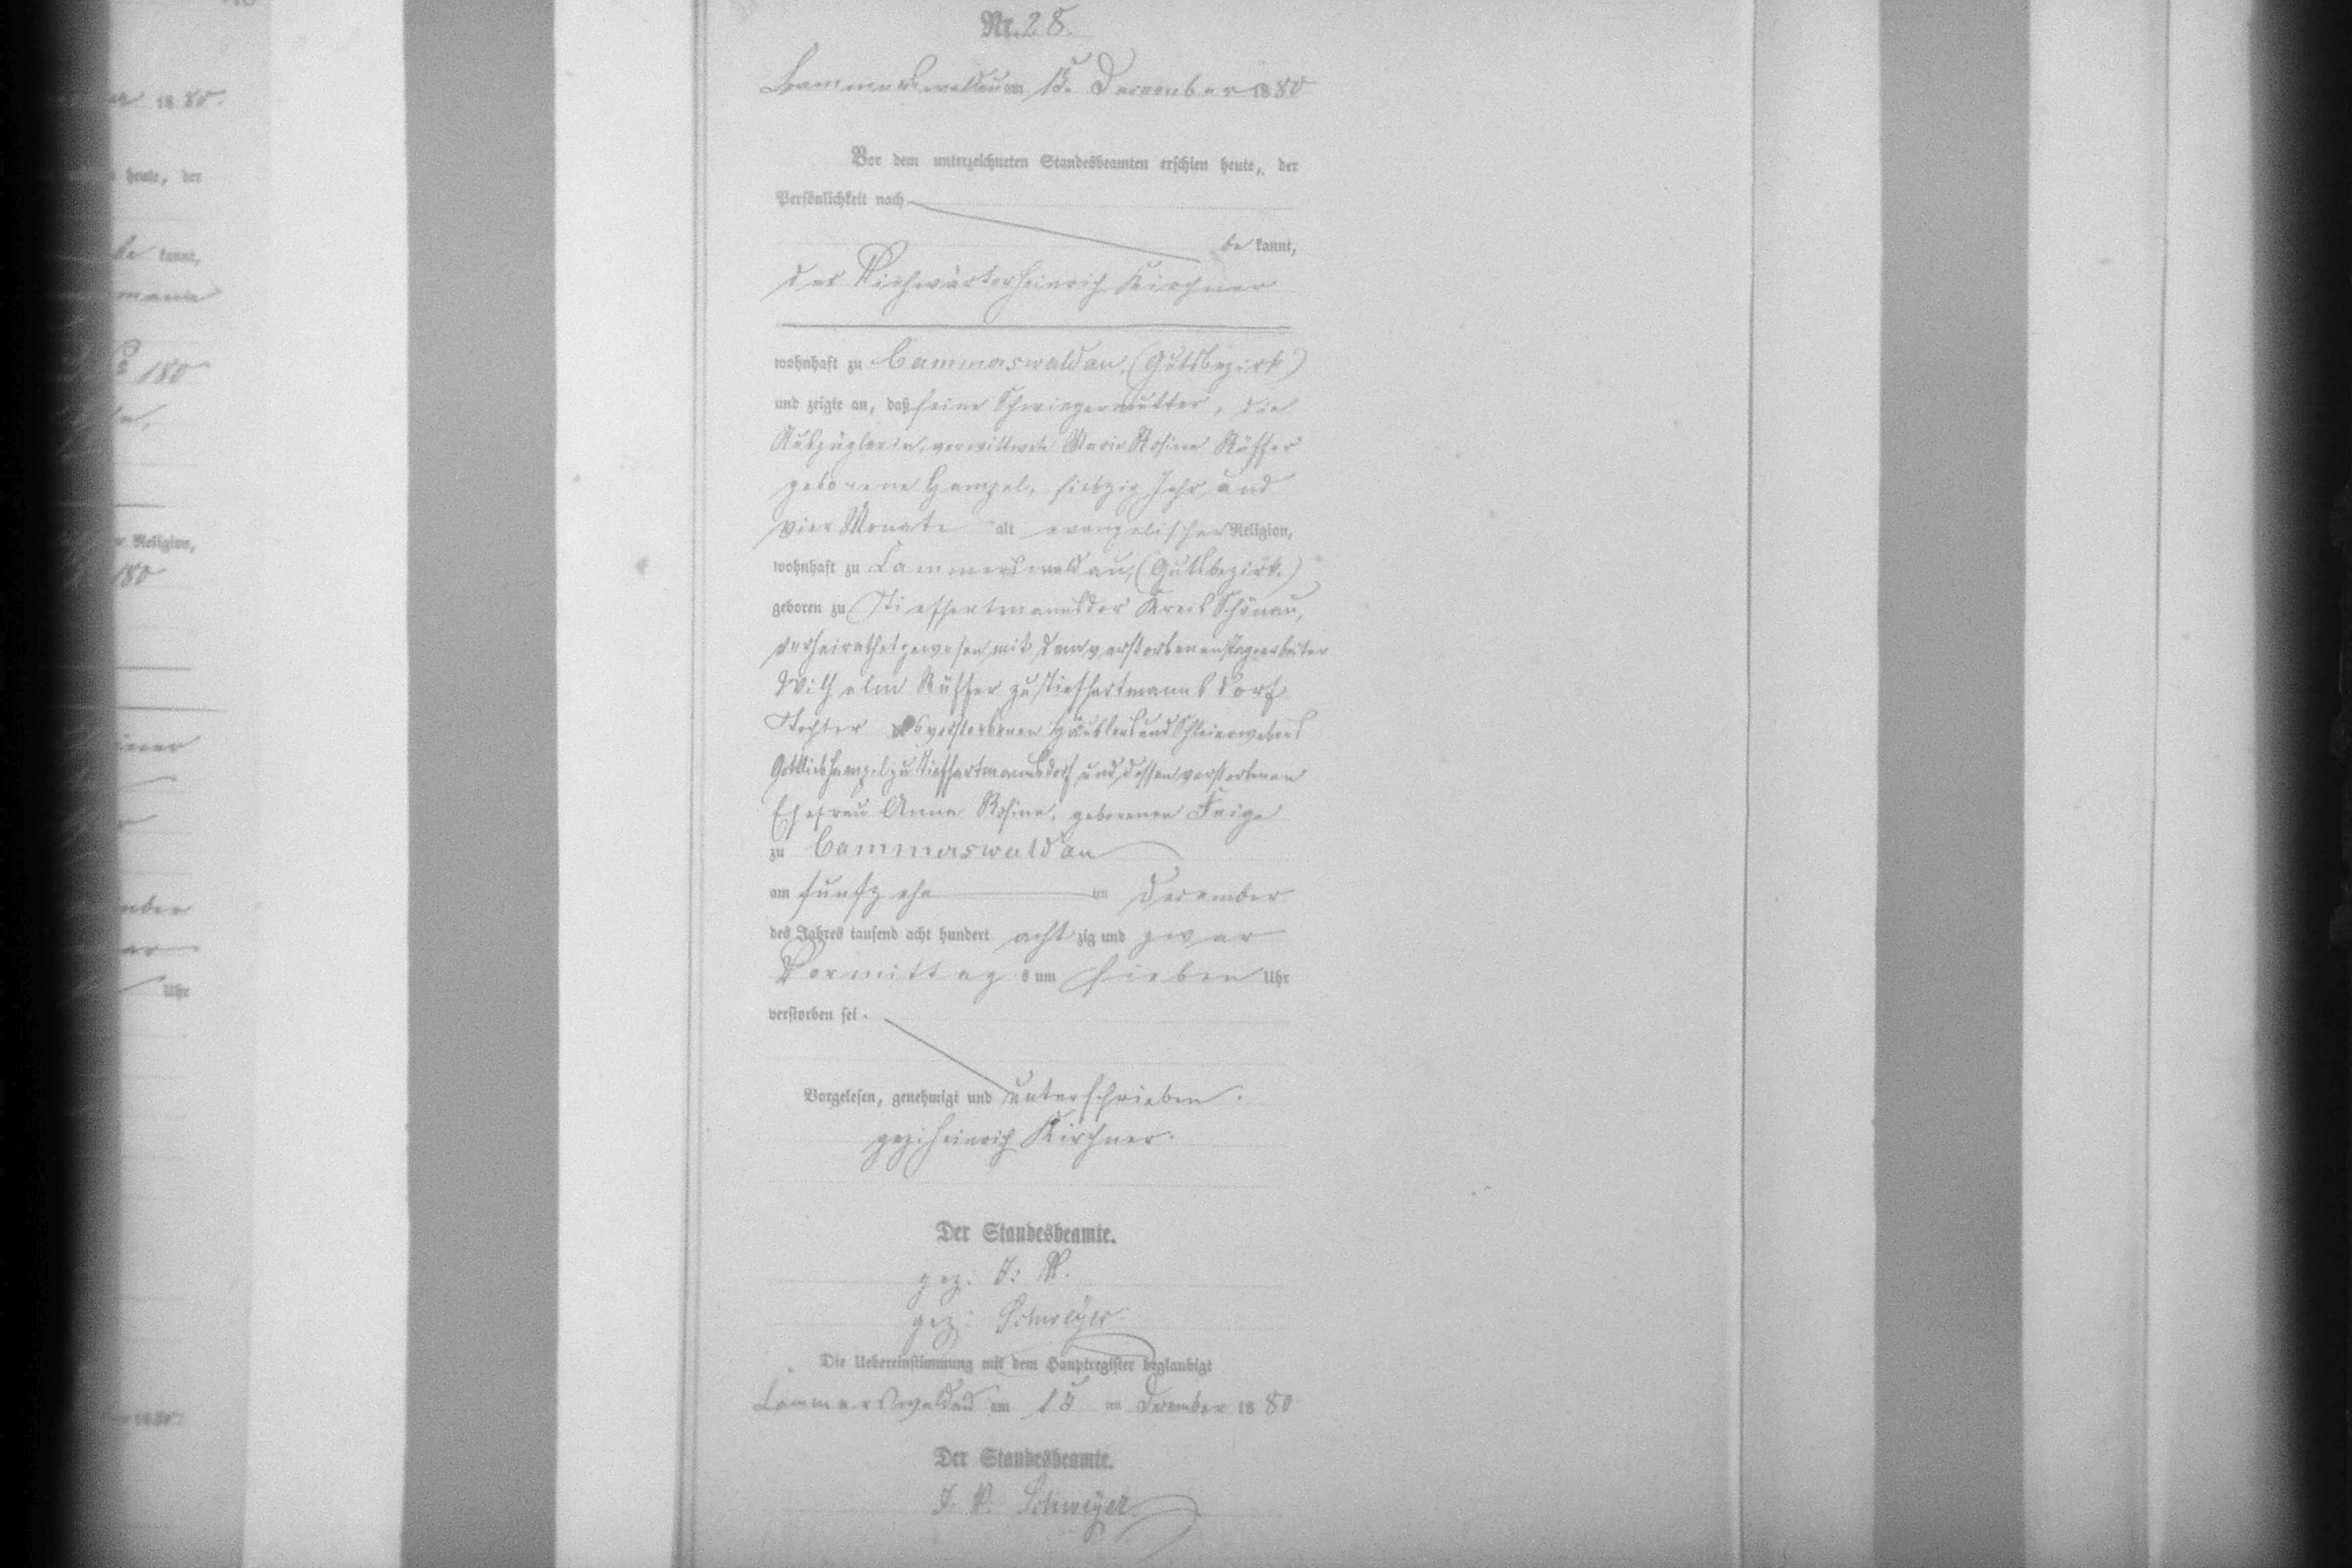 Nr. 28.
Cammerswaldau am 15. December 1880
Vor dem unterzeichneten Standesbeamten erschien heute, der
Persönlichkeit nach
be kannt,
der Viehwärter Heinrich Kirchner
wohnhaft zu Cammerswaldau, (Gutsbezirk)
und zeigte an, daß seine Schwiegermutter, die
Auszüglerin, verwittwete Marie Rosine Rüffer
geborene Hampel, siebzig Jahr und
vier Monate alt evangelischer Religion,
wohnhaft zu Cammerswaldau, (Gutsbezirk.)
geboren zu Tiefhartmannsdor Kreis Schönau,
verheirathet gewesen mit dem verstorbenen Tagearbeiter
Wilhelm Rüffer zu Tiefhartmannsdorf
Tochter des verstorbenen Häuslers und Schleierwebers
Gottlieb Hampel zu Tiefhartmannsdorf und dessen verstorbenen
Ehefrau Anna Rosine, geborenen Feige
zu Cammerswaldau
am fünfzehn ten December
des Jahres tausend acht hundert acht zig und zwar
Vormittag s um sieben Uhr
verstorben sei.
Vorgelesen, genehmigt und unterschrieben.
gez: Heinrich Kirchner.
Der Standesbeamte.
gez. J. V.
gez: Schweyer
Die Uebereinstimmung mit dem Hauptregister beglaubigt
Cammerswaldau am 15 ten December 1880
Der Standesbeamte.
J. V. Schweyer
er 1880.
heute, der
be kannt,
180
Religion,
180
Uhr